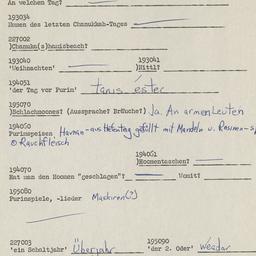 An welchen Tag?
193034
Namen des letzten Chanukkah-Tages
227002
)Chanuka(s)hausbesch?
193040 193041
'Weihnachten' )Nittl?
194051
'der Tag vor Purim' tanis ester
195070
)Schlachmoones? (Aussprache? Bräuche?) Ja. An armen Leuten
194050
Purimspeisen Haman-aus Hefeteig gefüllt mit Mandeln u. Rosinen-
Rauchfleisch
194061
)Homentaschen?
194070
Hat man den Homen "geschlagen"? Womit?
195080
Purinspiele, -lieder Maskiren(?)
227003 195090
'ein Schaltjahr' Überjahr 'der 2. Oder' weadar